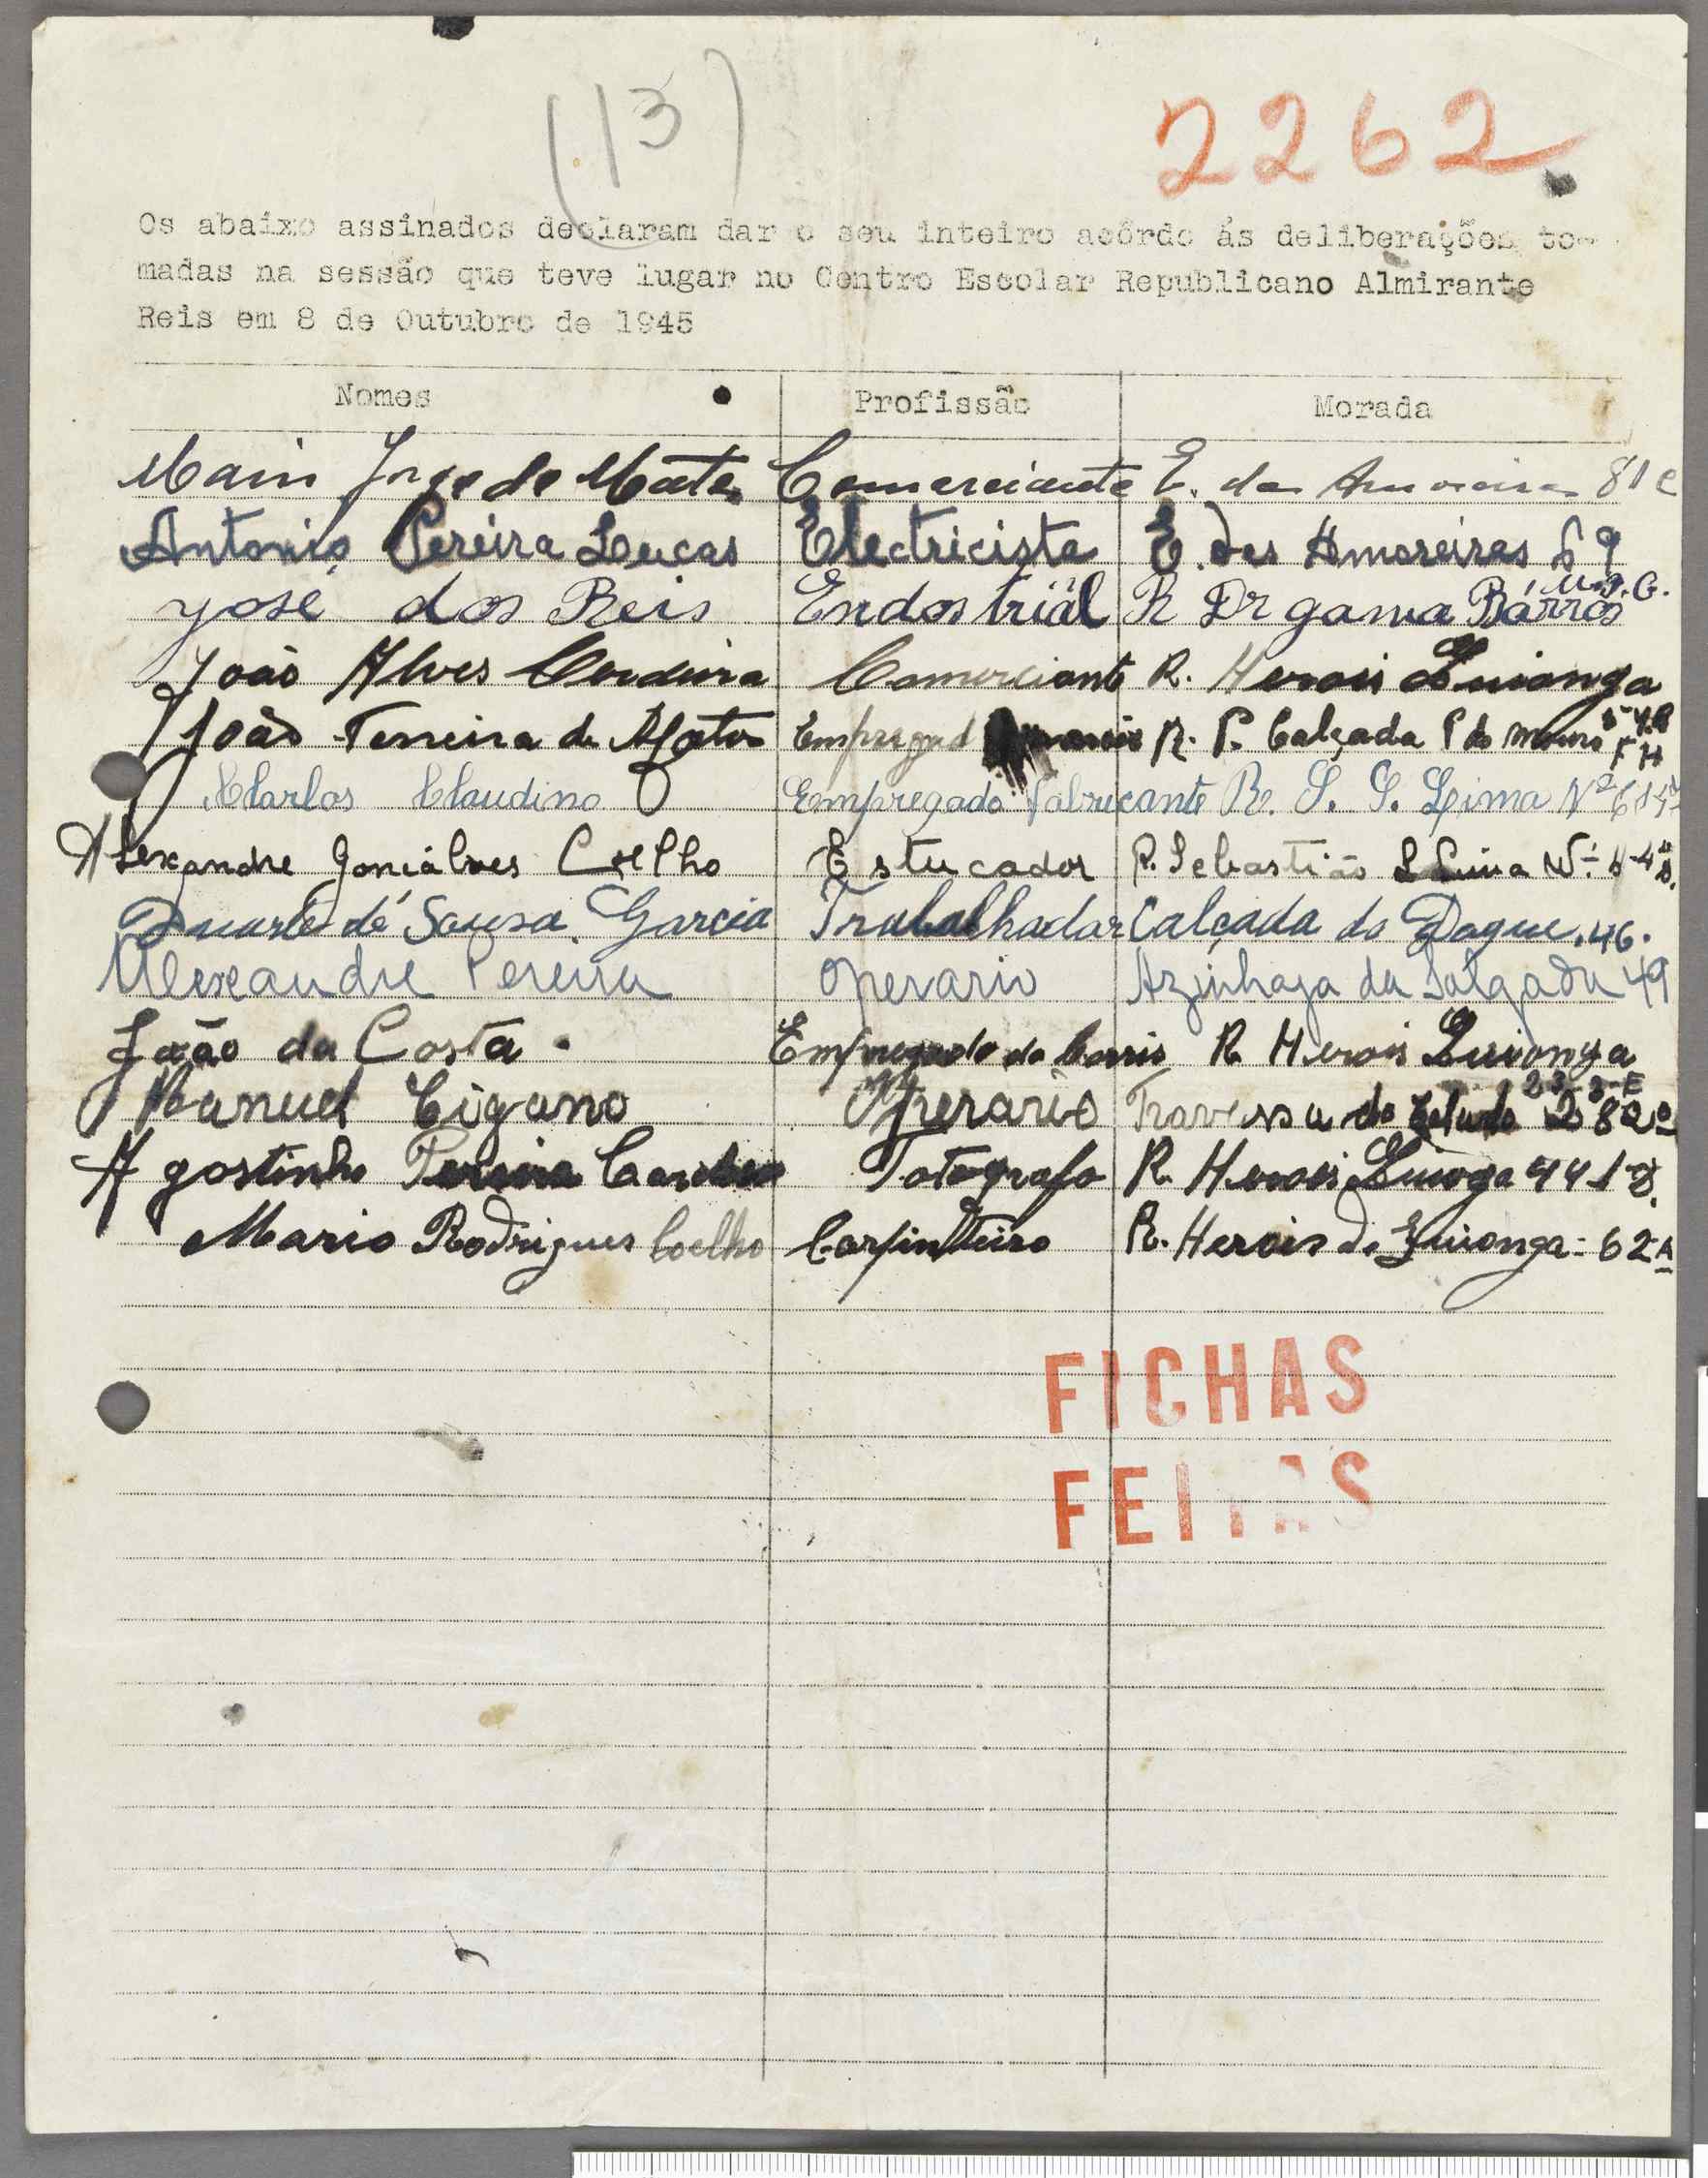 (13)
2262
Os abaixo assinados declaram dar o seu inteiro acôrdo ás deliberações to-
madas na sessão que teve lugar no Centro Escolar Republicano Almirante
Reis em 8 de Outubro de 1945
Nomes Profissão Morada
Jorge de Comerciante E. das 81 C
Antonio Pereira Lucas Electricista E. das Amoreiras 69
José dos Reis Endostrial R Dr gama Bárros
João Alves Comerciante R. Herois Quionga
João Ferreira de Matos Empregad R. P. Calçada P do
Carlos Claudino Eempregado fabricante R. S. S. Lima Nº
Alexandre Gonçálves Coelho Estucador R. Sebastião S Lima Nº
Duarte de Sousa Garcia Trabalhador Calçada do 46.
Alexandre Pereira Operario Azinhaga da Salgada 49
João da Costa Empregado da Carris R Herois Quionga
Manuel Cigano Operario Travessa do
Agostinho Pereira Fotografo R. Herois Quioga 44
Mario Rodrigues Coelho Carpinteiro R. Herois de Quionga - 62
FICHAS
FEITAS